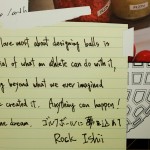 love most about designing balls is
ial of what an athlete can do with it,
ng beyond what we ever imagined
created it. Anything can happen!
me dream. ゴルフボールに夢を込めて
Rock Ishii